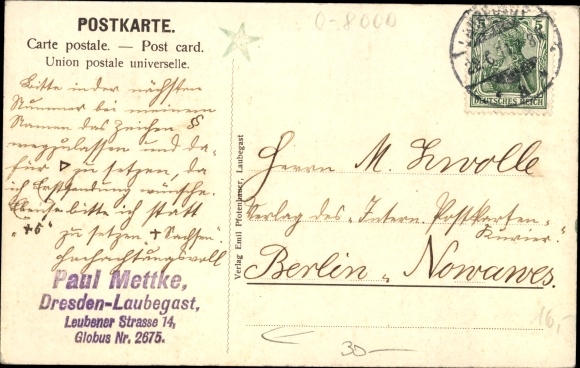 POSTKARTE.
Carte postale. — Post card.
Union postale universelle.
0-8000
5 5
DEUTSCHES REICH
Bitte in der nächsten
Nummer bei meinem
Namen das Zeichen §
wegzulassen und da-
für ▷ zu setzen, da
ich Erstsendung wünsche.
bitte ich statt
"+6" zu setzen "+ Sachsen".
Hochachtungsvoll
Paul Mettke,
Dresden-Laubegast,
Leubener Strasse 14,
Globus Nr. 2675.
Verlag Emil Pfotenhauer, Laubegast
Herrn M. Zwolle
Verlag des "Intern. Postkarten-
Kurier."
Berlin - Nowawes.
16,-
30-